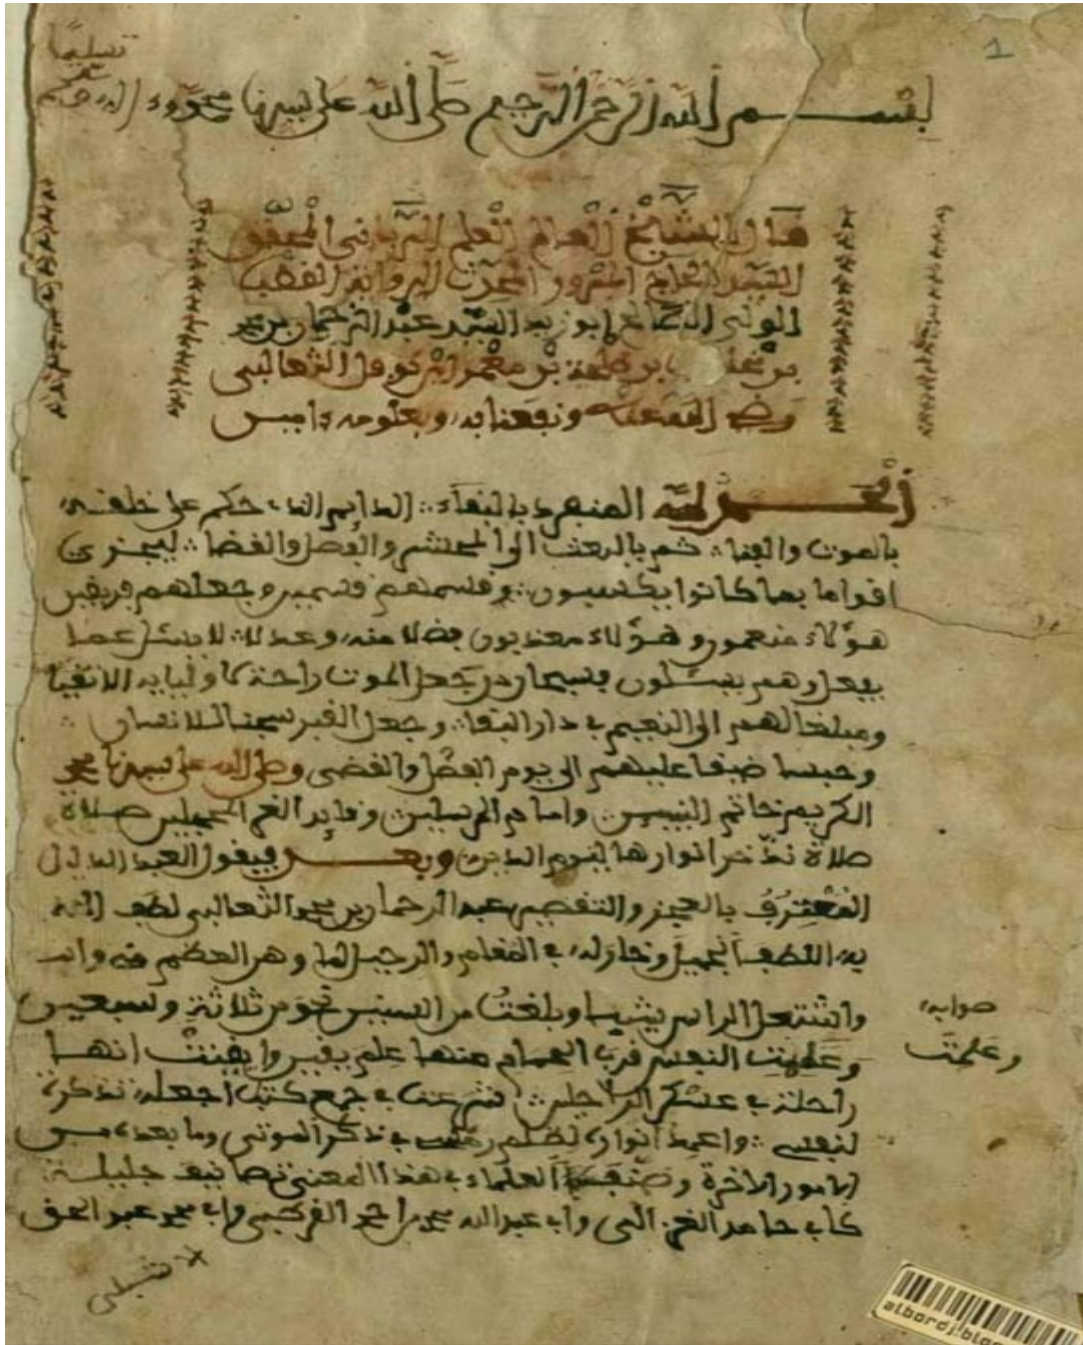 1
تسليما
بسم الله الرحمن الرحيم صلى الله على سيدنا محمد وءاله وصحبه
قال الشيخ العالم العلم الرباني المحقق
السيد الحاج المبرور المحدث الرواية القطب
الولي الصالح ابو زيد السيد عبد الرحمان بن محمد
بن مخلوف بن طلحة بن معمر بن نوفل الثعالبي
رضي الله عنه ونفعنا به وبعلومه ءاميس
الحمد لله المنفرد بالبقاء الدايم الذي حكم على خلقه
بالموت والفنا ثم بالبعث الى المحشر والفصل والقضا ليجزي
اقواما بما كانوا يكسبون وقسمهم قسمين وجعلهم فريقين
هؤلاء منعمون وهؤلاء معذبون فضلا منه وعدلا لا يسئل عما
يفعل وهم يسئلون فسبحان من جعل الموت راحة لاوليايه الاتقيا
ومبلغا لهم الى النعيم في دار البقا وجعل القبر سجنا للانسان
وحبسا ضيقا عليهم الى يوم الفصل والقضى وصلى الله على سيدنا محمد
الكريم خاتم النبيين وامام المرسلين وقايد الغر المحجلين صلاة
صلاة ندخر انوارها ليوم الدين وبعد فيقول العبد الذليل
المعترف بالعجز والتقصير عبد الرحمان بن محمد الثعالبي لطف الله
به اللطف الجميل وخار له في المقام والرحيل لما وهن العظم مني وانـ
واشتعل الراس شيبا وبلغت من السنين نحو من ثلاثة وسبعين
صوابه
وعلمت النفس قرب الحمام منها علم يقين وايقنت انها
وعلمت
راحلة في عسكر الراحلين شرعت في جمع كتب اجعله تذكرة
لنفسي واعمد انواره لظلم رمسي في ذكر الموتى وما بعده من
امور الاخرة وصنف العلماء في هذا المعنى تصانيف جليلة
كابي حامد الغزالي وابي عبد الله محمد بن احمد القرطبي وابي محمد عبد الحق
albordj.blog